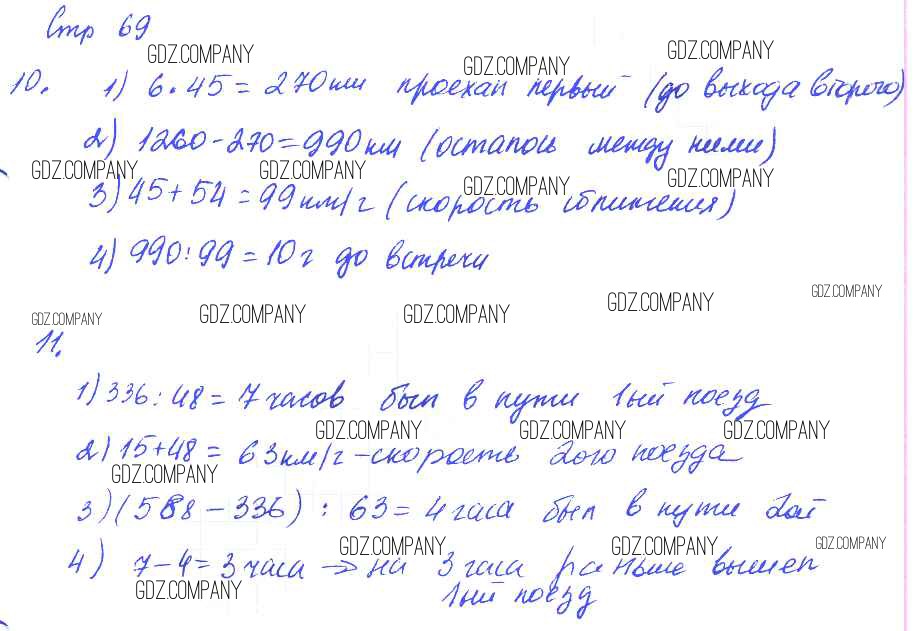 Стр 69
GDZ.COMPANY GDZ.COMPANY GDZ.COMPANY
10. 1) 6·45 = 270 км проехал первый (до выхода второго)
2) 1260-270=990 км (осталось между ними)
GDZ.COMPANY GDZ.COMPANY GDZ.COMPANY GDZ.COMPANY
3) 45+54 = 99 км/г (скорость сближения)
4) 990:99 = 10 г до встречи
GDZ.COMPANY GDZ.COMPANY GDZ.COMPANY GDZ.COMPANY GDZ.COMPANY
11.
1) 336:48 = 7 часов был в пути 1ый поезд
GDZ.COMPANY GDZ.COMPANY GDZ.COMPANY
2) 15+48 = 63 км/г - скорость 2ого поезда
GDZ.COMPANY
3) (588 - 336) : 63 = 4 часа был в пути 2ой
GDZ.COMPANY GDZ.COMPANY GDZ.COMPANY
4) 7-4 = 3 часа → на 3 часа раньше вышел
GDZ.COMPANY
1ый поезд